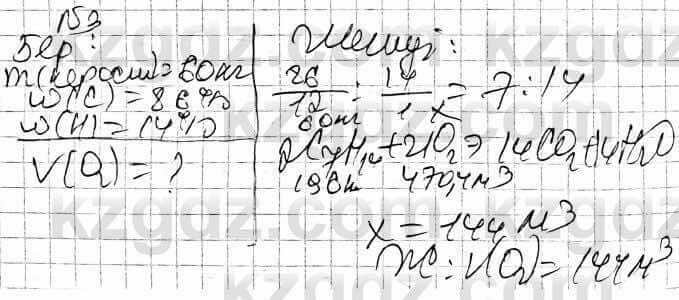 №3
Бер:
m(керосин)=60кг
w(C)=86%
w(H)=14%
V(O2)=?
Шешуі:
86/12 : 14/1 = 7:14
60кг x
2C7H14+21O2→14CO2+14H2O
196кг 470,4м3
x=144м3
Ж: V(O2)=144м3
kzgdz.com